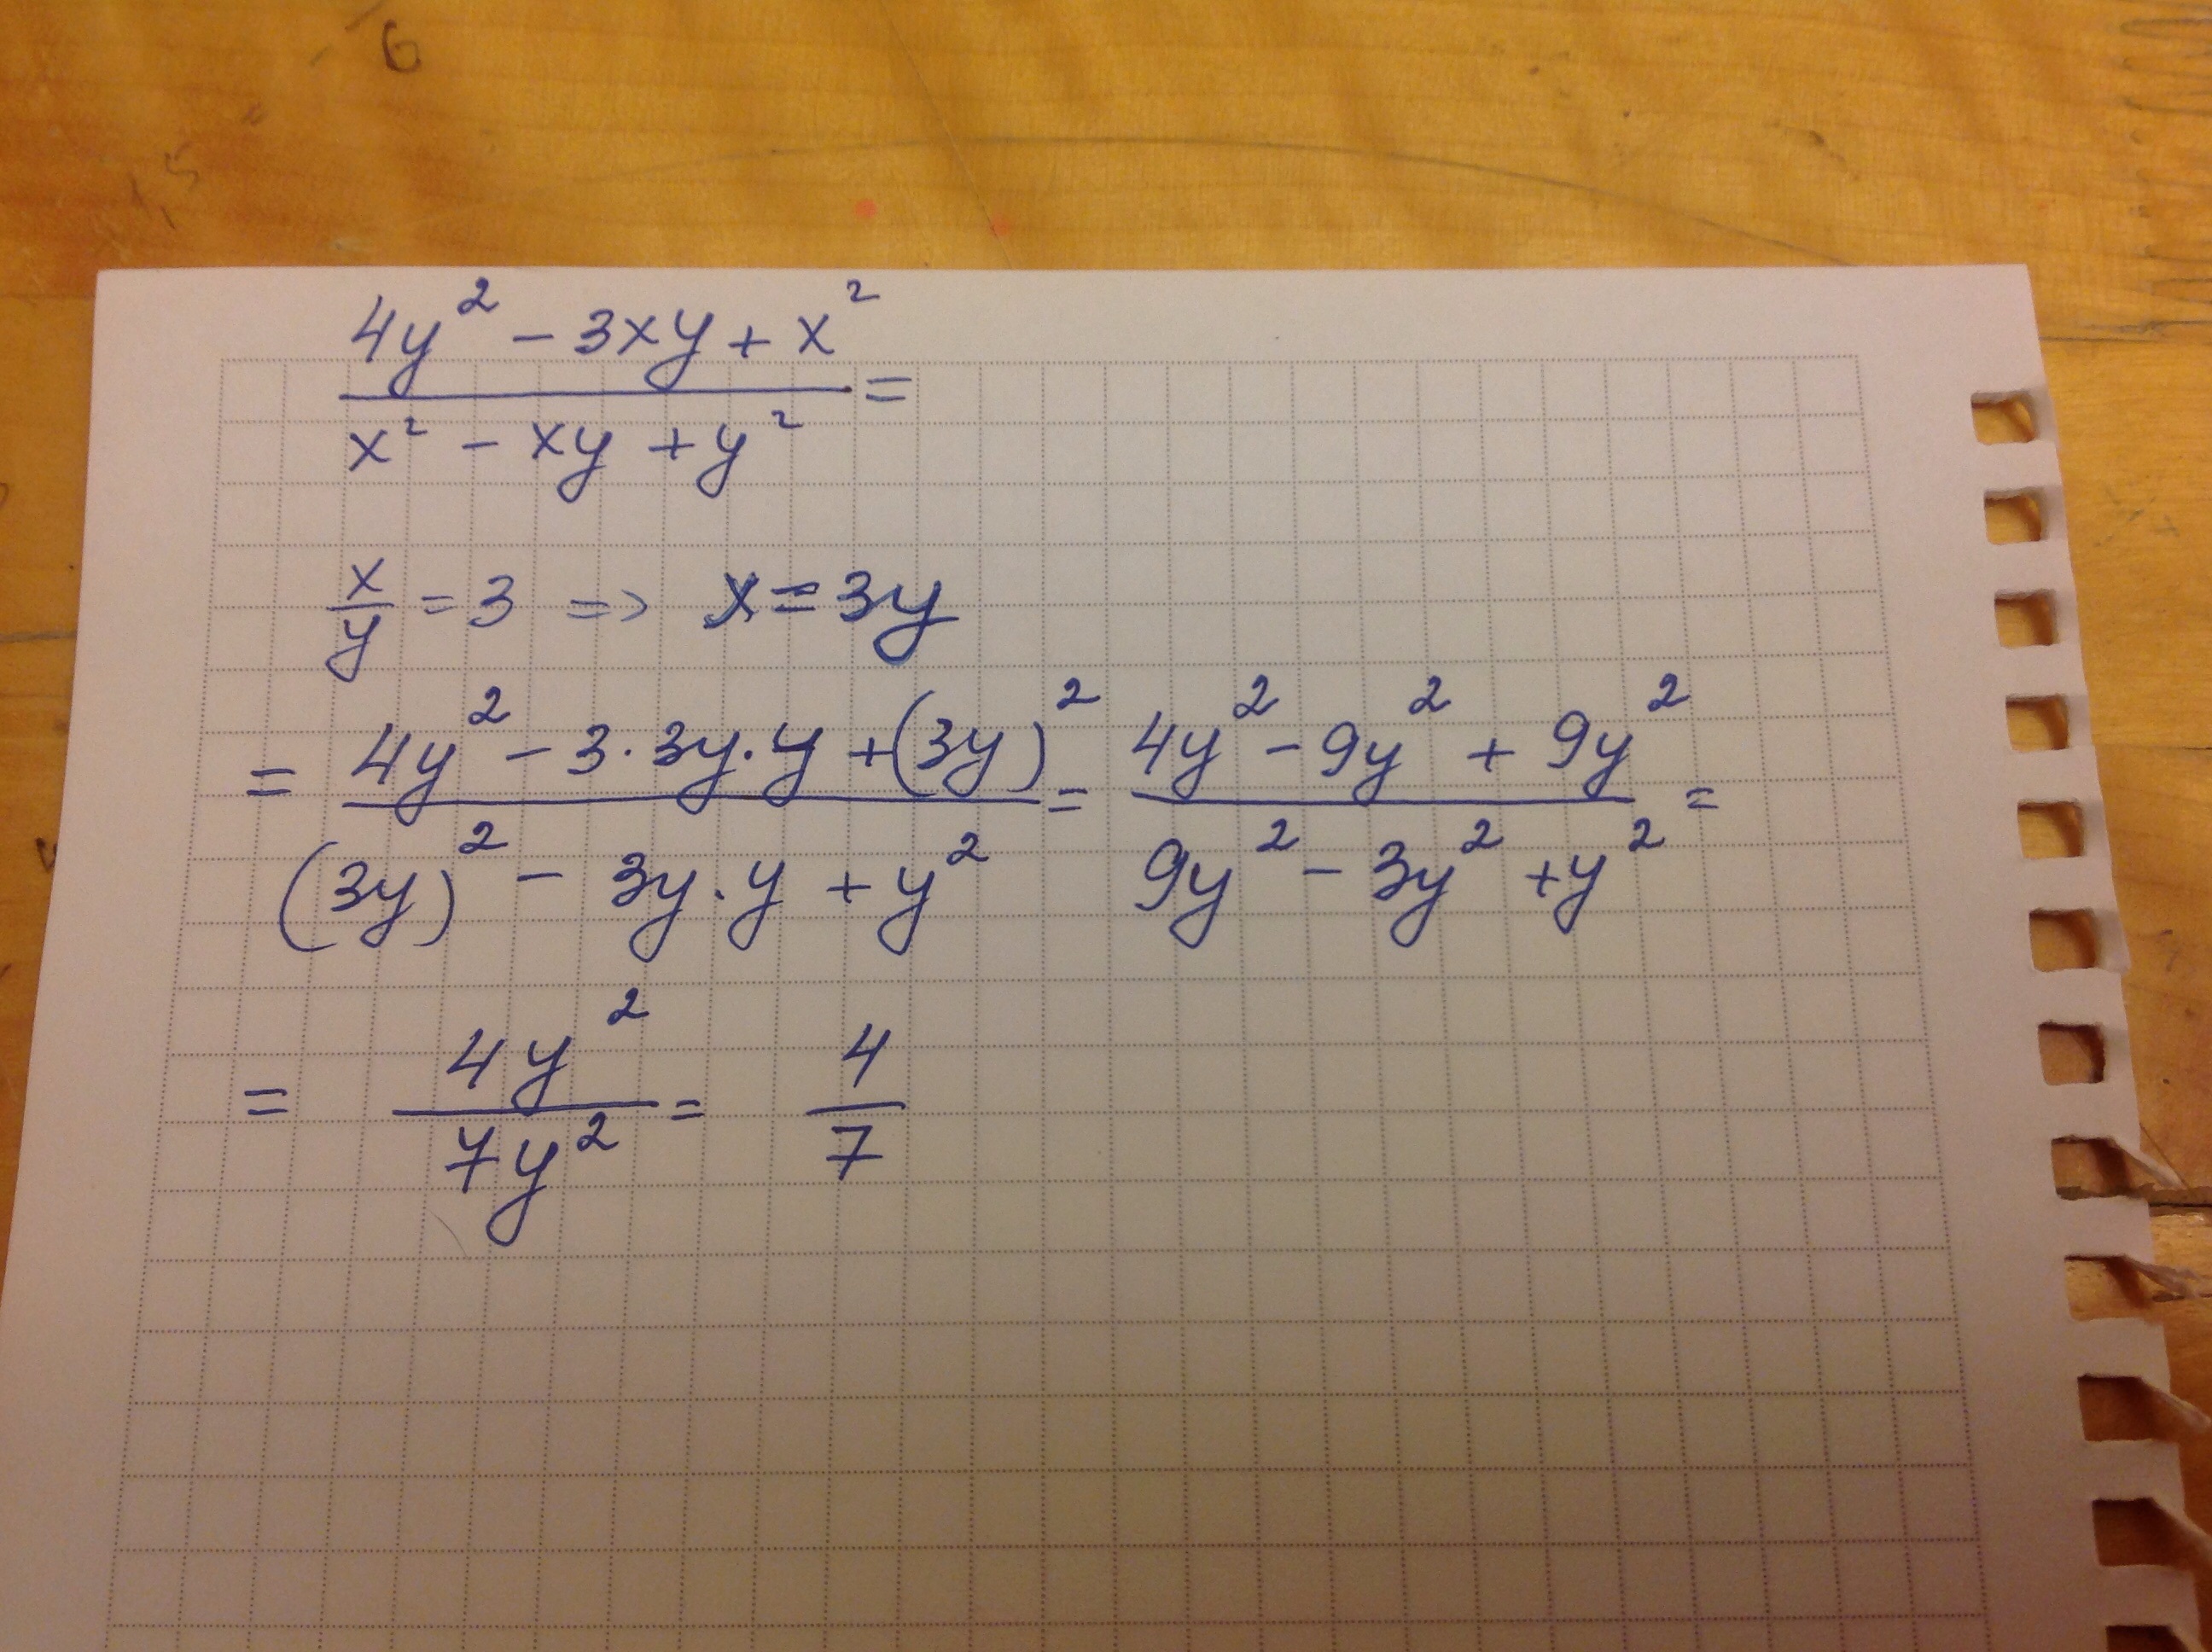 (4y² - 3xy + x²) / (x² - xy + y²) =
x/y = 3 => x = 3y
= (4y² - 3·3y·y + (3y)²) / ((3y)² - 3y·y + y²) = (4y² - 9y² + 9y²) / (9y² - 3y² + y²) =
= 4y² / 7y² = 4/7